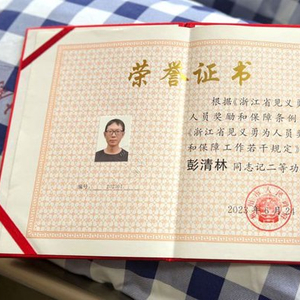 荣誉证书
根据《浙江省见义勇
人员奖励和保障条例
《浙江省见义勇为人员奖
和保障工作若干规定》
彭清林 同志记二等功
编号
2023年6月2